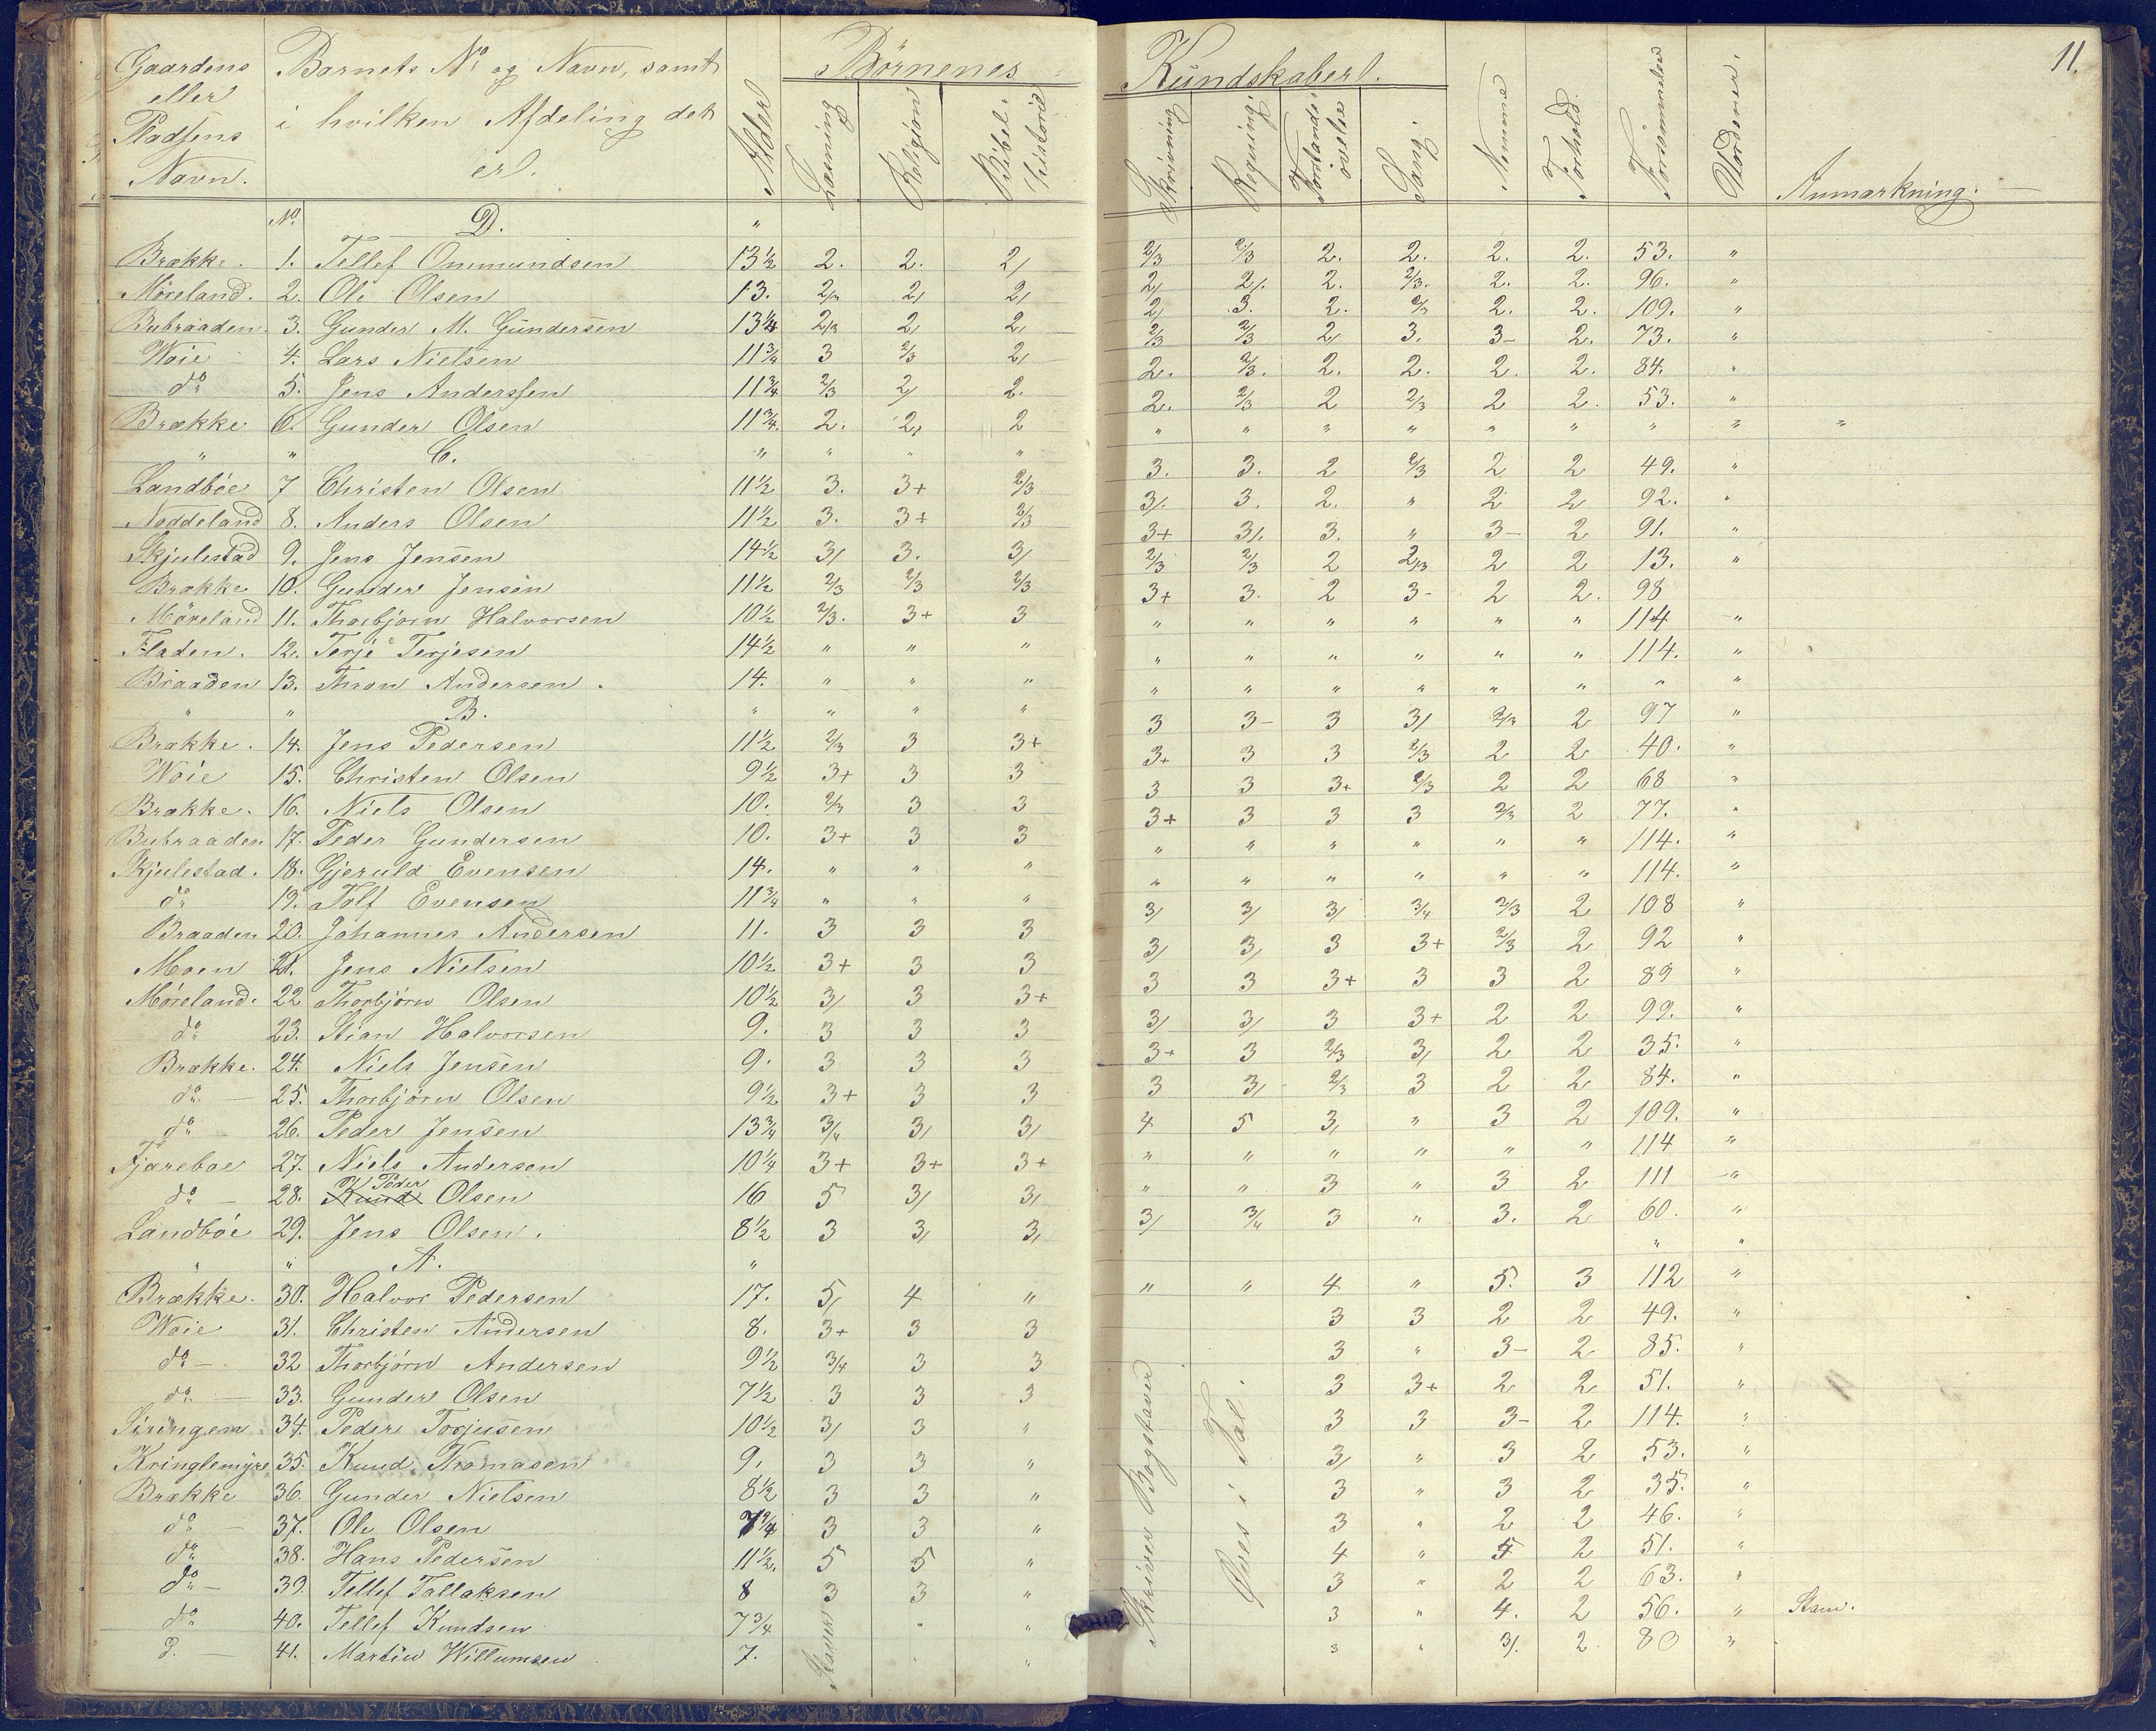 11.
Gaardens eller Pladsens Navn. | Barnets No og Navn, samt i hvilken Afdeling det er. | Alder | Børnenes Kundskaber. | Læsning | Religion | Bibelhistorie | Skrivning | Regning. | Forstandsøvelse | Sang. | Nemme | Forhold. | Forsømmelse | Anmærkning.
No | D. | "
Brække. | 1. | Tellef Ommundsen | 13½ | 2. | 2. | 2/ | 2/3 | 2/3 | 2. | 2. | 2. | 2. | 53. | "
Møreland. | 2. | Ole Olsen | 13. | 2/3 | 2/ | 2/ | 2/ | 2/. | 2. | 2/3. | 2. | 2. | 96. | "
Bubraaden | 3. | Gunder M. Gundersen | 13¼ | 2/3 | 2/ | 2/ | 2/ | 3. | 2. | 2/3 | 2. | 2. | 109. | "
Woie | 4. | Lars Nielsen | 11¾ | 3 | 2/3 | 2/ | 2/3 | 2/3 | 2/ | 3. | 3- | 2. | 73. | "
do | 5. | Jens Anderssen | 11¾ | 2/3 | 2/ | 2. | 2. | 2/3. | 2. | 2. | 2. | 2. | 84. | "
Brække | 6. | Gunder Olsen | 11¾. | 2. | 2/ | 2 | 2. | 2/3 | 2 | 2/3 | 2 | 2. | 53. | "
" | " | C. | " | " | " | " | " | " | " | " | " | " | " | " | "
Landbøe | 7 | Christen Olsen | 11½ | 3. | 3+ | 2/3 | 3. | 3. | 2 | 2/3 | 2 | 2 | 49. | "
Noddeland | 8. | Anders Olsen | 11½ | 3. | 3+ | 2/3 | 3/. | 3. | 2. | " | 2 | 2 | 92. | "
Skjulestad | 9. | Jens Jensen | 14½ | 3/ | 3. | 3/ | 3+ | 3/. | 3. | " | 3- | 2 | 91. | "
Brække | 10. | Gunder Jensen | 11½ | 2/3 | 2/3 | 2/3 | 2/3 | 2/3 | 2 | 2/3 | 2 | 2 | 13. | "
Møreland | 11. | Thorbjørn Halvorsen | 10½ | 2/3. | 3+ | 3 | 3+ | 3. | 2 | 3- | 2 | 2. | 98
Fladen. | 12. | Terje Terjesen | 14½ | " | " | " | " | " | " | " | " | " | 114 | "
Braaden | 13. | Thron Andersen. | 14. | " | " | " | " | " | " | " | " | " | 114. | "
" | " | B. | " | " | " | " | " | " | " | " | " | " | " | "
Brække. | 14. | Jens Pedersen | 11½ | 2/3 | 3 | 3+ | 3 | 3- | 3 | 3/ | 2/3 | 2 | 97 | "
Woie | 15. | Christen Olsen | 9½ | 3+ | 3 | 3 | 3+ | 3 | 3 | 2/3 | 2 | 2 | 40. | "
Brække. | 16. | Niels Olsen | 10. | 2/3 | 3 | 3 | 3 | 3 | 3+ | 2/3 | 2 | 2 | 68 | "
Bubraaden | 17. | Peder Gundersen | 10. | 3+ | 3 | 3 | 3+ | 3 | 3 | 3 | 2/3 | 2 | 77. | "
Skjulestad. | 18. | Gjeruld Evensen | 14. | " | " | " | " | " | " | " | " | " | 114. | "
do | 19. | Tolf Evensen | 11¾ | " | " | " | " | " | " | " | " | " | 114. | "
Braaden | 20. | Johannes Andersen | 11. | 3 | 3 | 3 | 3/ | 3/ | 3/ | 3/4 | 2/3 | 2 | 108 | "
Moen | 21. | Jens Nielsen | 10½ | 3+ | 3 | 3 | 3/ | 3/ | 3 | 3+ | 2/3 | 2 | 92 | "
Møreland. | 22 | Thorbjørn Olsen | 10½ | 3/ | 3 | 3+ | 3 | 3 | 3+ | 3 | 3 | 2 | 89 | "
do | 23. | Stian Halvorsen | 9. | 3 | 3 | 3 | 3/ | 3/ | 3 | 3+ | 2 | 2 | 99. | "
Brække. | 24. | Niels Jensen | 9. | 3 | 3 | 3 | 3+ | 3 | 2/3 | 3/ | 2 | 2 | 35. | "
do | 25. | Thorbjørn Olsen | 9½ | 3+ | 3 | 3 | 3 | 3/ | 2/3 | 3 | 2 | 2 | 84. | "
do | 26. | Peder Jensen | 13¾ | 3/4 | 3/ | 3/ | 4 | 5 | 3/ | " | 3 | 2 | 109. | "
Tjareboe | 27. | Niels Andersen | 10¼ | 3+ | 3+ | 3+ | " | " | " | " | " | " | 114 | "
do | 28. | Knud Peder Olsen | 16 | 5 | 3/ | 3/ | " | " | 3 | " | 3 | 2 | 111 | "
Landbøe | 29. | Jens Olsen. | 8½ | 3 | 3/ | 3/ | 3/ | 3/4 | 3 | " | 3. | 2 | 60. | "
" | " | A. | " | " | "
Brække. | 30. | Halvor Pedersen | 17. | 5/ | 4 | " | " | " | 4 | " | 5. | 3 | 112 | "
Woie | 31. | Christen Andersen | 8. | 3+ | 3 | 3 | 3 | 3 | 2 | 2 | 49. | "
do | 32 | Thorbjørn Andersen | 9½ | 3/4 | 3 | 3 | 3 | " | 3- | 2 | 85. | "
do | 33. | Gunder Olsen | 7½ | 3 | 3 | 3 | 3 | 3+ | 2 | 2 | 51. | "
34. | Peder Torjusen | 10½ | 3/ | 3 | " | 3 | 3 | 3- | 2 | 114. | "
Kringlemyre | 35. | Knud Thomasen | 9. | 3 | 3 | " | 3/ | " | 3 | 2 | 53. | "
Brække | 36. | Gunder Nielsen | 8½ | 3 | 3 | " | 3 | " | 3 | 2 | 35. | "
do | 37. | Ole Olsen | 7¾ | 3 | 3 | " | 3 | " | 2 | 2 | 46. | "
do | 38. | Hans Pedersen | 11½. | 5 | 5 | " | 4 | " | 5 | 2 | 51. | "
do | 39. | Tellef Tallaksen | 8 | 3 | 3 | " | 3 | " | 2 | 2 | 63. | "
do | 40. | Tellef Knudsen | 7¾ | " | " | 3 | " | 4. | 2 | 56. | " | Stam.
d. | 41. | Martin Willumsen | 7. | " | " | 3 | " | 3/. | 2 | 80 | "
Staver
Skriver Bogstaver
Øves i Tal.